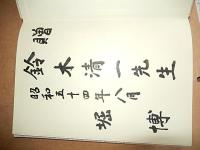 贈
鈴木清一先生
昭和五十四年八月
堀博